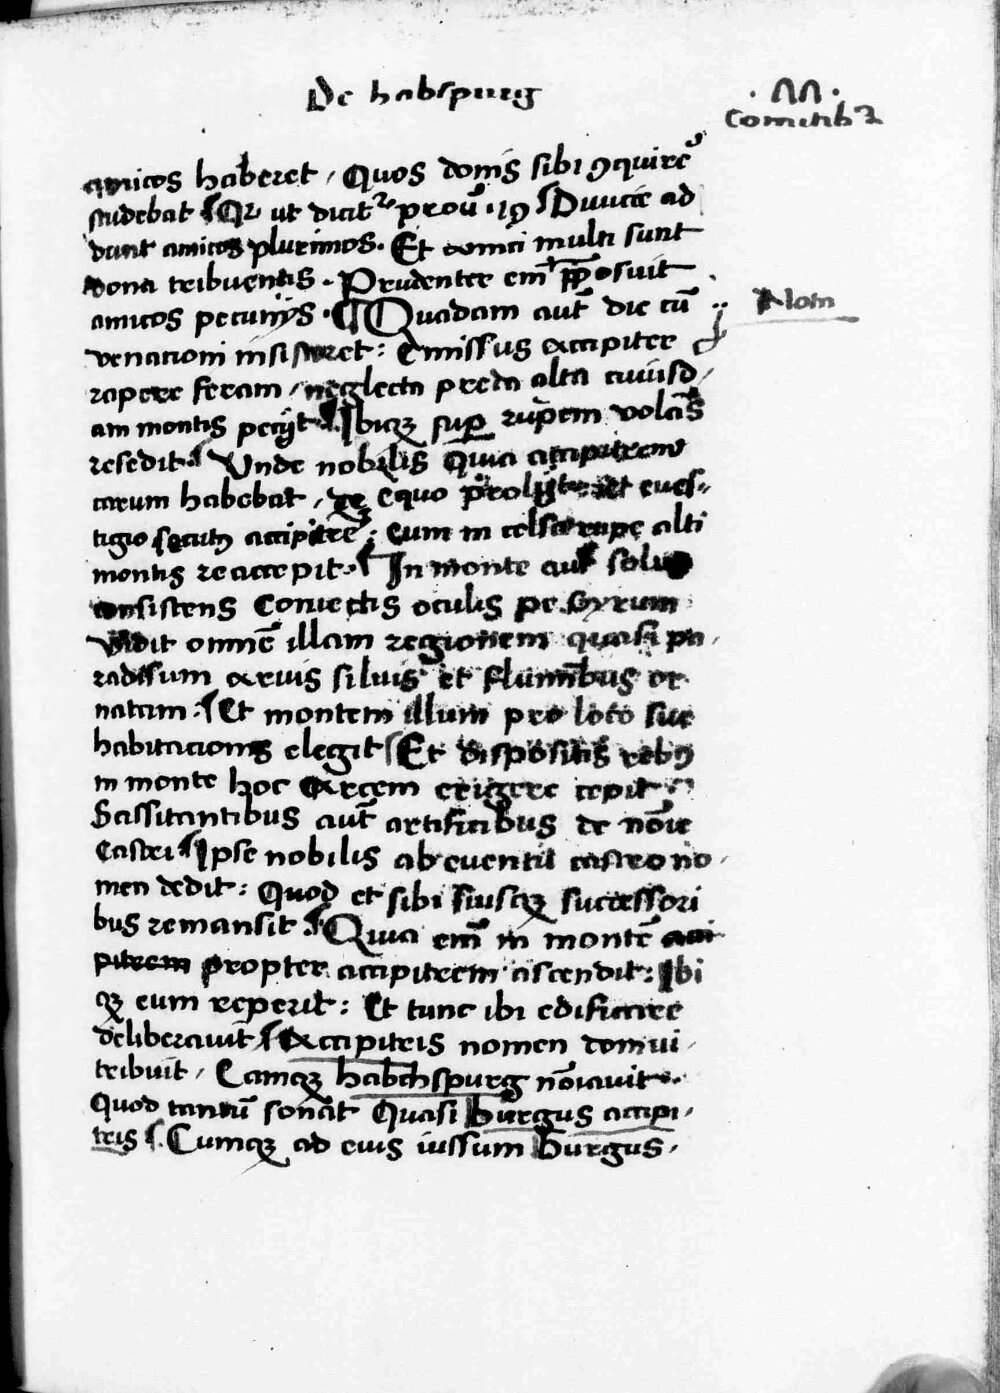 De habspurg
Comitibꝫ
amicos haberet / Quos donis sibi ꝯquirere
studebat Qꝛ ut dicitᷣ prou̅ · 19 Diuicie ad
dunt amicos plurimos · Et amici multi sunt
dona tribuentis · Prudenter em̅ p̅posuit
amicos pecunijs · Quadam aut̅ die cu̅
Nota
venacioni insisteret : Emissus accipiter
rapere feram / neglecta preda alta cuiusd /
am montis pecijt Ibiqꝫ sup̲ rupem vola̅s
resedit · Unde nobilis Quia accipitrem
carum habebat / de equo et eues⸗
tigio secutꝰ accipitre̅ : Eum in celsa rupe alti
montis reaccepit · In monte aut̅ solus
consistens Coniectis oculis per gyrum
vidit omne̅ illam regionem quasi pa /
radisum aruis siluis et fluminibus or
natam : Et montem illum pro loco sue
habitacionis elegit Et dispositis rebꝰ
in monte hoc Arcem erigere cepit
Sassitantibus aut̅ artificibus de no̅ie
Castri Ipse nobilis ab euentu castro no /
men dedit : Quod et sibi suisqꝫ successori
bus remansit · Quia em̅ in monte̅ acci
pitrem propter accipitrem ascendit : Ibi
qꝫ eum reperit : Et tunc ibi edificare
deliberauit Accipitris nomen domui /
tribuit / Eamqꝫ habchspurg no̅iauit ·
Quod tantu̅ sonat Quasi burgus accipi /
tris Cumqꝫ ad eius iussum Burgus /